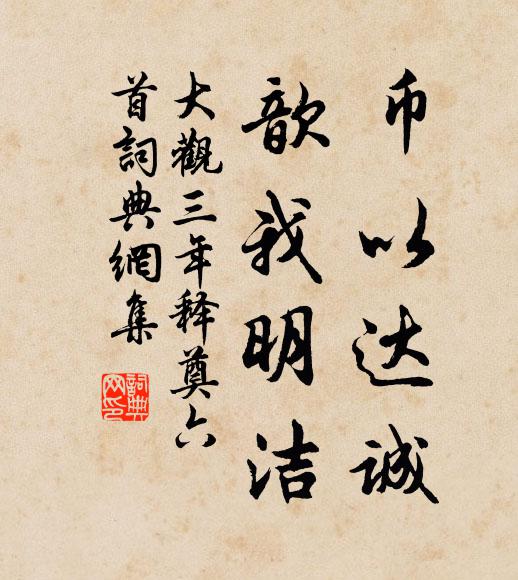 币以达诚
歆我明洁
大觀三年释奠六
首詞典網集
詞典
网印